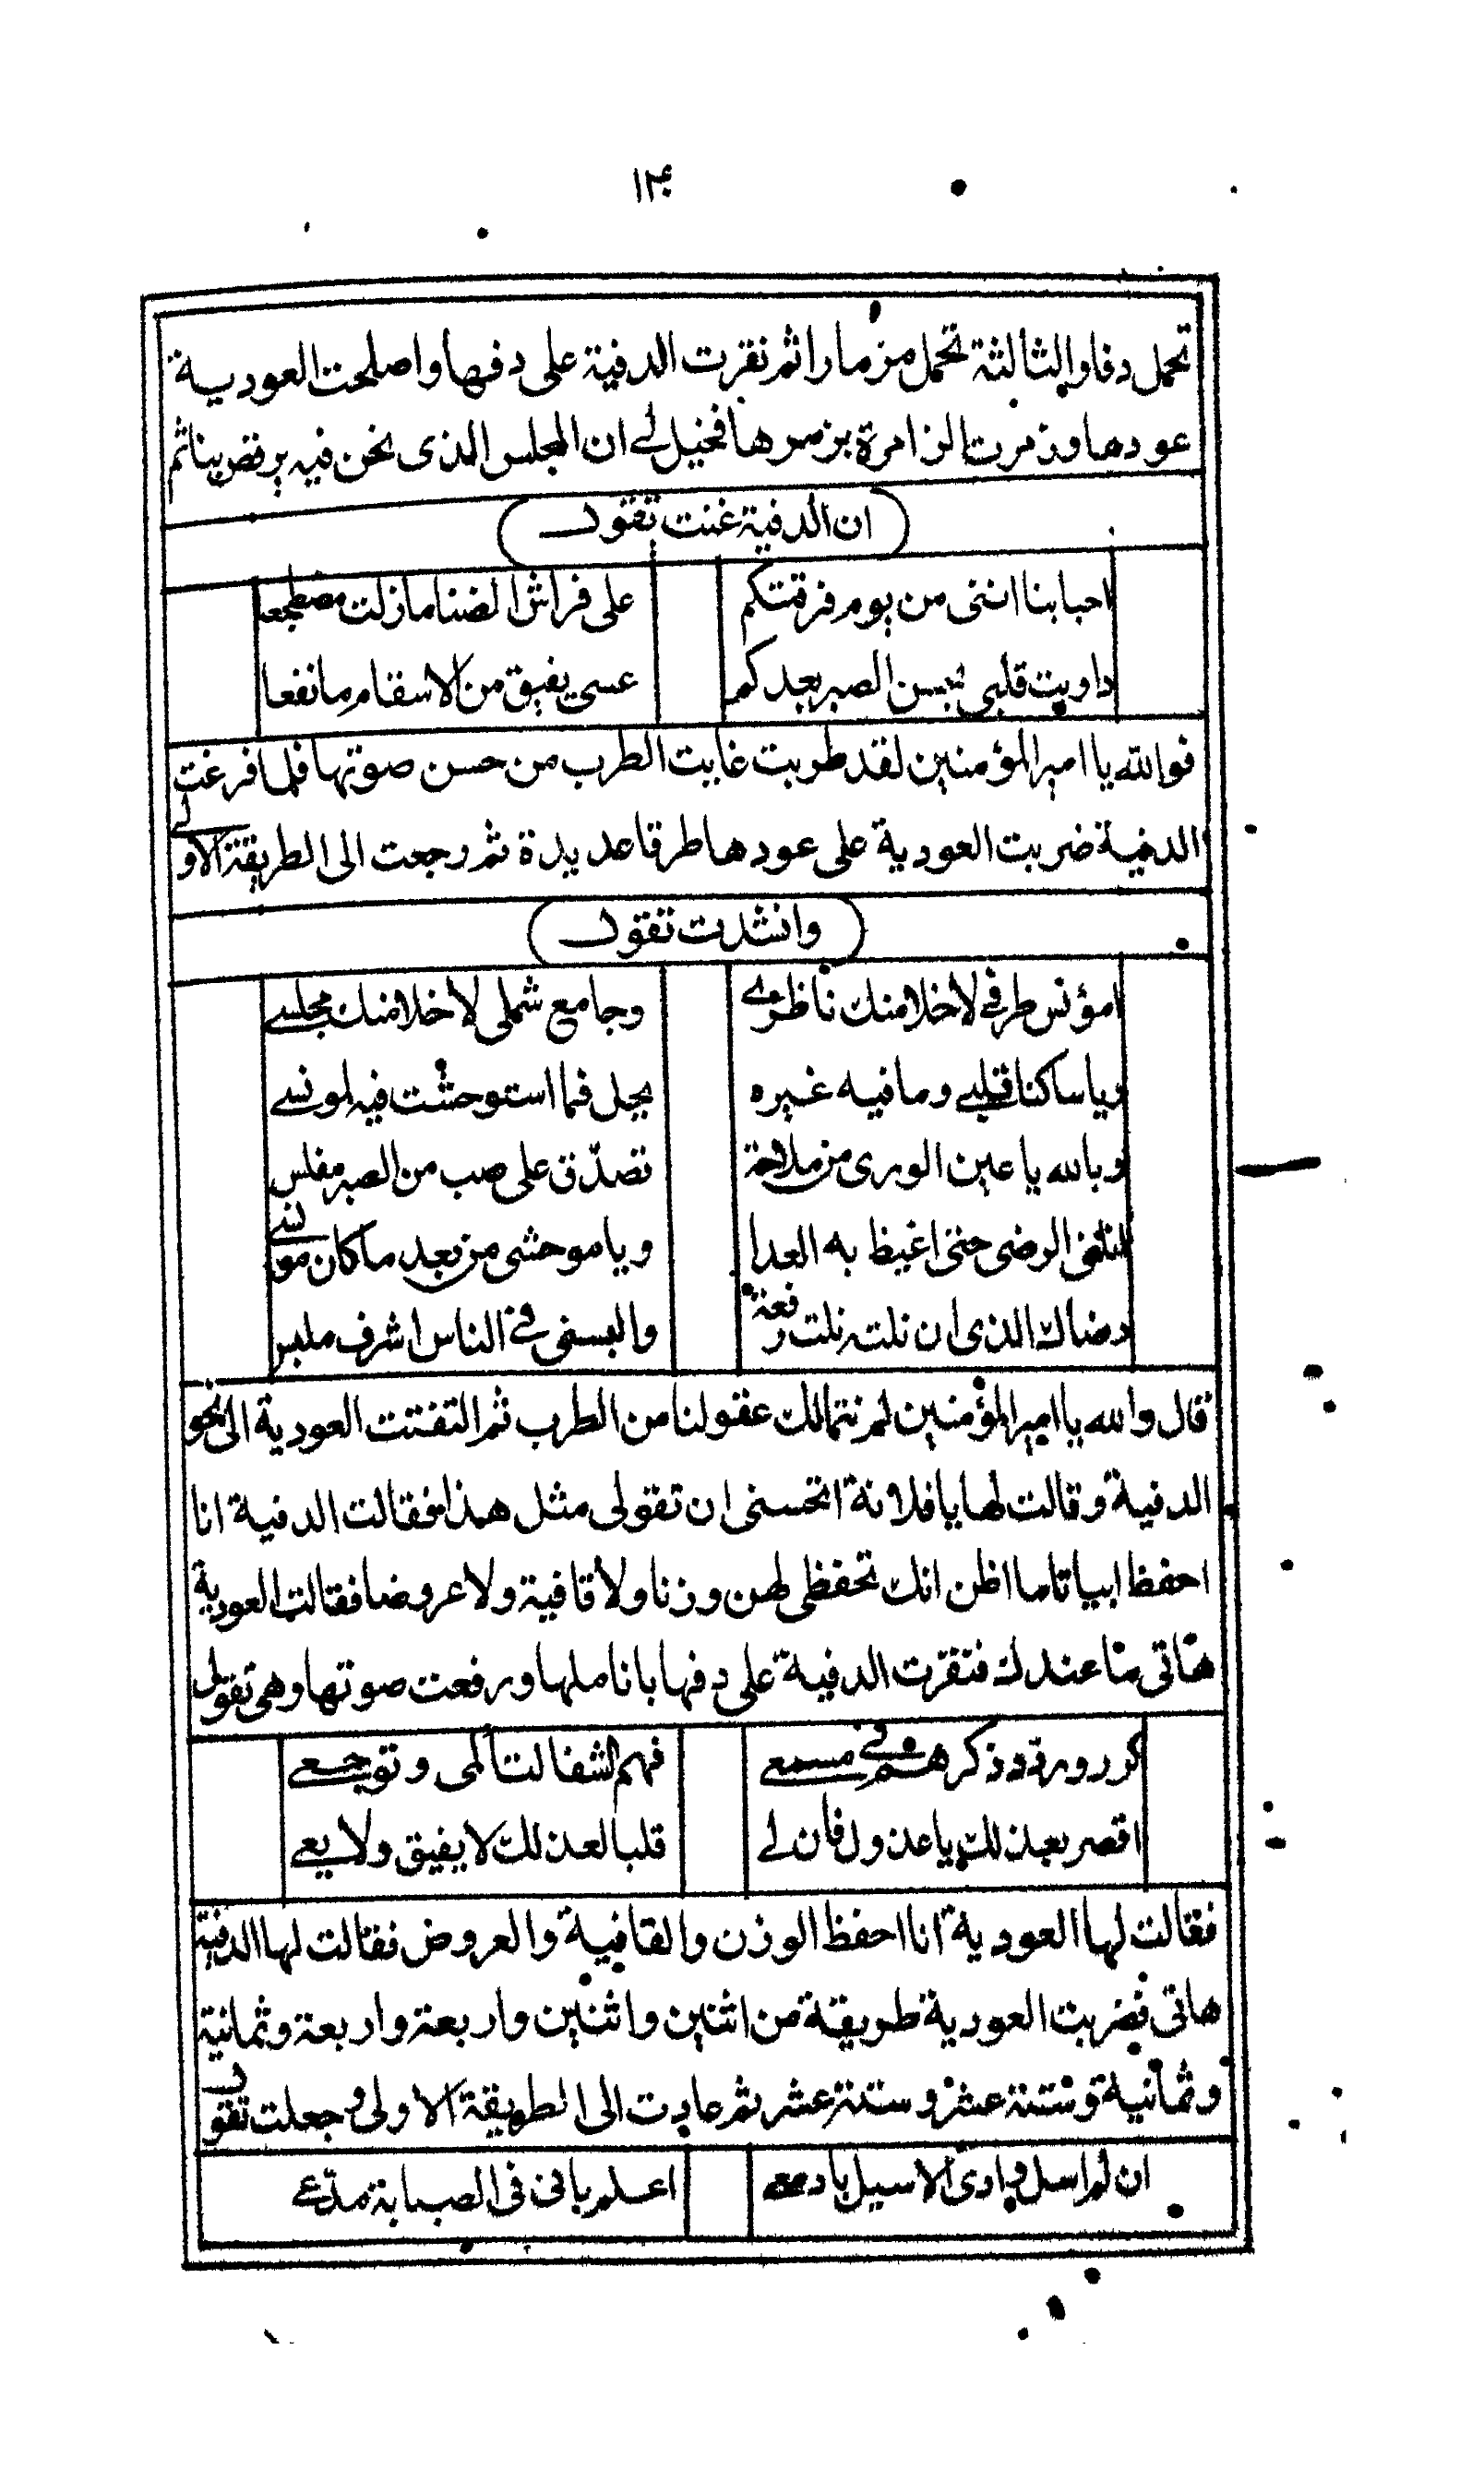 ١٣
تحمل دفا والثالثة تحمل مزمارا ثم نقرت الدفية على دفها واصلحت العودية
عودها وزمرت الزامرة بزمرها فخيل لى ان المجلس الذى نحن فيه يرقص بنا ثم
ان الدفية غنت تقول
احبابنا اننى من يوم فرقتكم على فراش الضنا مازلت مضطجعا
داويت قلبى بحسن الصبر بعدكم عسى يفيق من الاسقام مانفعا
فوالله يا امير المؤمنين لقد طربت غايت الطرب من حسن صوتها فلما فرغت
الدفية ضربت العودية على عودها طرقا عديدة ثم رجعت الى الطريقة الاولى
وانشدت تقول
امؤنس طرفى لاخلا منك ناظرى وجامع شملى لاخلا منك مجلسى
ويا ساكنا قلبى وما فيه غيره بحل فما استوحشت فيه لمونسى
وبالله يا عين الورى من ملاحة تصدّق على صب من الصبر مفلس
الرضى حتى اغيظ به العدا ويا موحشى من بعد ماكان مونسى
رضاك الذى ان نلته نلت رفعة والبسنى فى الناس اشرف ملبس
قال والله يا امير المؤمنين لم نتمالك عقولنا من الطرب ثم التفتت العودية الى نحو
الدفية وقالت لها يا فلانة اتحسنى ان تقولى مثل هذا فقالت الدفية انا
احفظ ابياتا ما اظن انك تحفظى لهن وزنا ولا قافية ولا عروضا فقالت العودية
هاتى ما عندك فنقرت الدفية على دفها باناملها ورفعت صوتها وهى تقول
كرر وردد ذكرهم فى مسمعى فهم الشفا لتألمى وتوجعى
اقصر بعذلك يا عذول فان لى قلبا لعذلك لا يفيق ولا يعى
فقالت لها العودية انا احفظ الوزن والقافية والعروض فقالت لها الدفية
هاتى فضربت العودية طريقة من اثنين واثنين واربعة واربعة وثمانية
وثمانية وستة عشر وستة عشر ثم عادت الى الطريقة الاولى وجعلت تقول
ان لم اسل وادى الاسيل بادمعى اعلم بانى فى الصبابة مدّعى